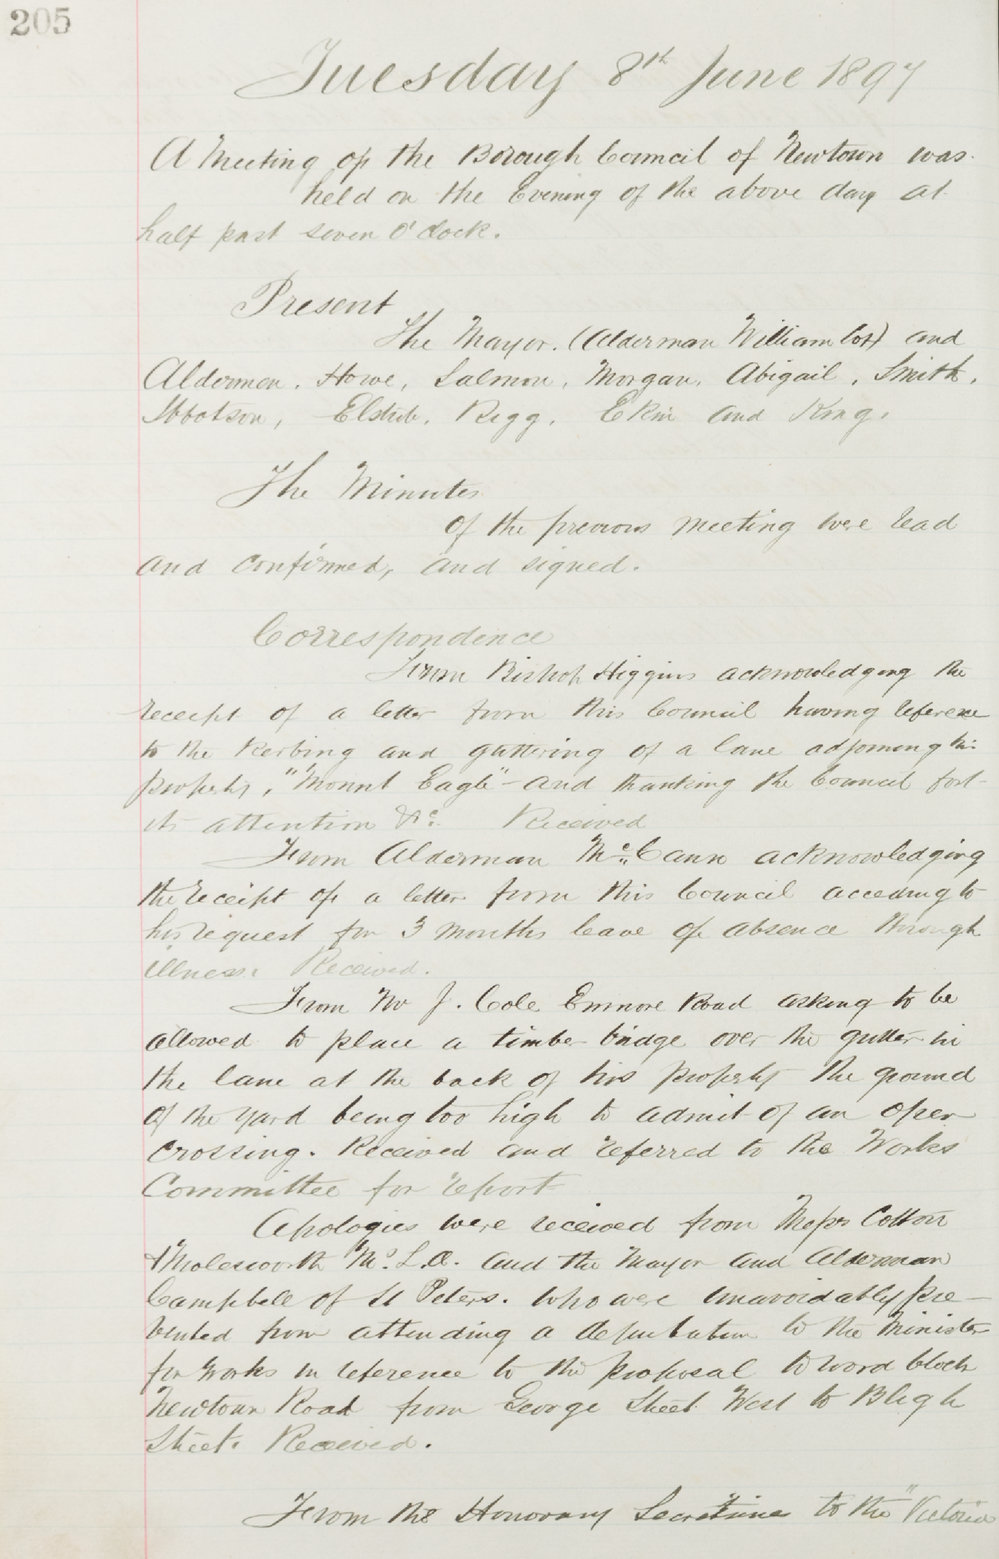 205
Tuesday 8th June 1897
A Meeting of the Borough Council of Newtown was
held on the Evening of the above day at
half past seven o'clock.
Present
The Mayor. (Alderman William Cox) and
Aldermen. Howe, Salmon, Morgan, Abigail, Smith,
Ibbotson, Elstub, Rigg, Ekin and King.
The Minutes
of the previous meeting were read
and confirmed, and signed.
Correspondence
From Bishop Higgins acknowledging the
receipt of a letter from this Council having reference
to the Kerbing and guttering of a lane adjoining his
property, "Mount Eagle" and thanking the Council for
its attention &c. Received
From Alderman McCann acknowledging
the receipt of a letter from this Council acceding to
his request for 3 months leave of absence through
illness. Received.
From Mr J. Cole Enmore Road asking to be
allowed to place a timber bridge over the gutter in
the lane at the back of his property the ground
of the yard being too high to admit of an open
crossing. Received and referred to the Works
Committee for report
Apologies were received from Messrs Cotton
& Molesworth Ms. L.A. and the Mayor and Alderman
Campbell of St Peters. who were unavoidably pre-
vented from attending a deputation to the Minister
for Works in reference to the proposal to wood block
Newtown Road from George Street West to Bligh
Street. Received.
From the Honorary Secretaries to the "Victoria